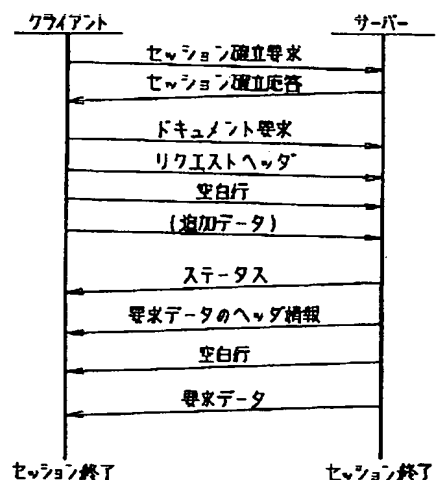 クライアント サーバー
セッション確立要求
セッション確立応答
ドキュメント要求
リクエストヘッダ
空白行
(追加データ)
ステータス
要求データのヘッダ情報
空白行
要求データ
セッション終了 セッション終了